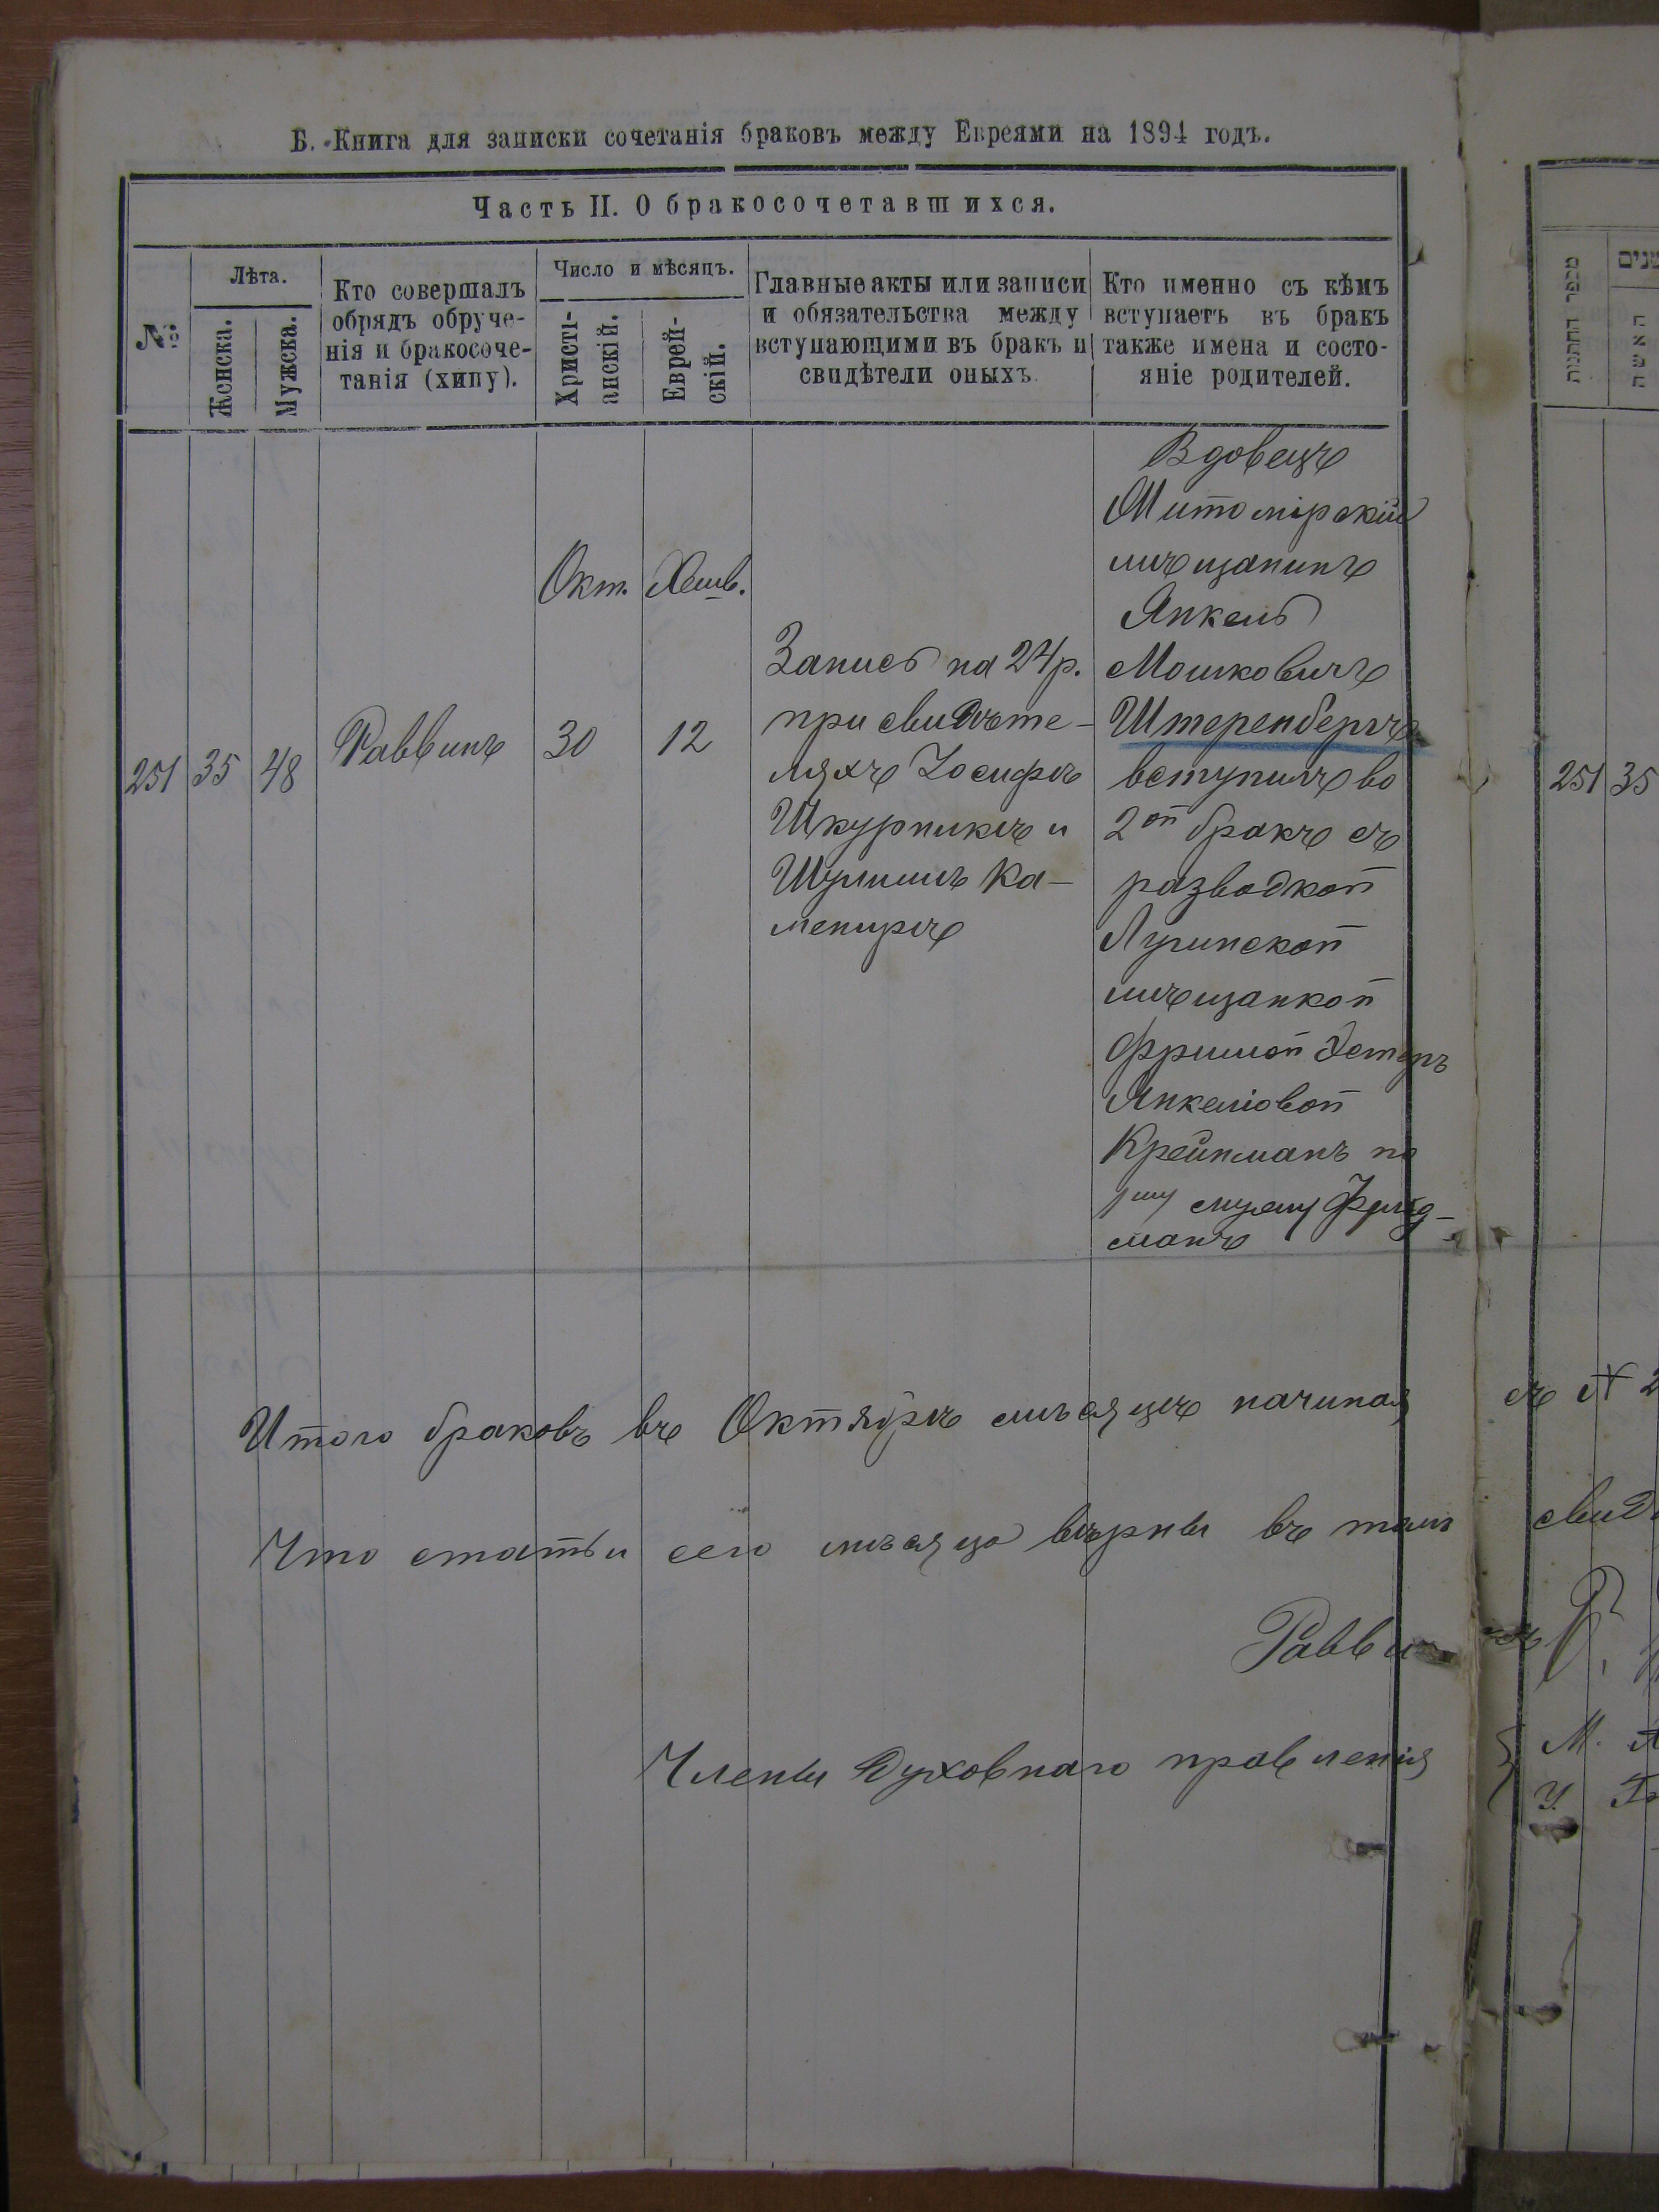 Б. Книга для записки сочетанія браковъ между Евреями на 1894 годъ.
Часть II. О бракосочетавшихся.
№
Лѣта.
Женска.
Мужска.
Кто совершалъ
обрядъ обруче-
нія и бракосоче-
танія (хипу).
Число и мѣсяцъ.
Христі-
анскій.
Еврей-
скій.
Главные акты или записи
и обязательства между
вступающими въ бракъ и
свидѣтели оныхъ
Кто именно съ кѣмъ
вступаетъ въ бракъ
также имена и состо-
яніе родителей.
251
35
48
Раввинъ
Окт.
30
Хешв.
12
Запись на 24 р.
при свидѣте-
ляхъ Іосифѣ
Шкурникѣ и
Шулимѣ Ка-
менирѣ
Вдовецъ
Житомірскій
мѣщанинъ
Янкель
Мошковичъ
Штеренбергъ
вступилъ во
2ой бракъ съ
разводкой
Лугинской
мѣщанкой
Фримой Эстеръ
Янкелiовой
Крейнманъ по
1му мужу Фрид-
манъ
Итого браковъ въ Октябрѣ мѣсяцѣ начиная съ № 2
Что статьи сего мѣсяца вѣрны въ томъ свид
Раввинъ
Члены Духовнаго правленія
М.
У.
מספר החתנות
שנים
האשה
251
35